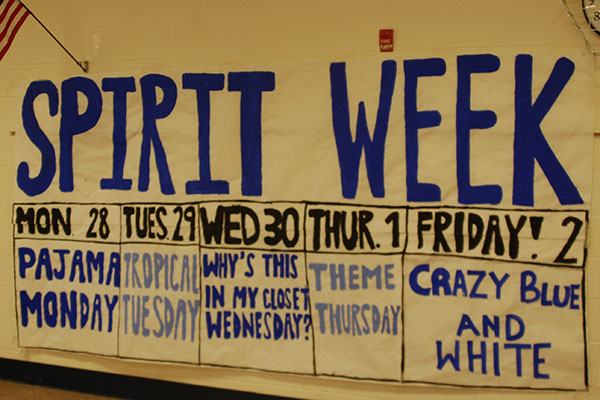 SPIRIT WEEK
MON. 28 TUES. 29 WED 30 THUR. 1 FRIDAY! 2
PAJAMA
MONDAY
TROPICAL
TUESDAY
WHY'S THIS
IN MY CLOSET
WEDNESDAY?
THEME
THURSDAY
CRAZY BLUE
AND
WHITE